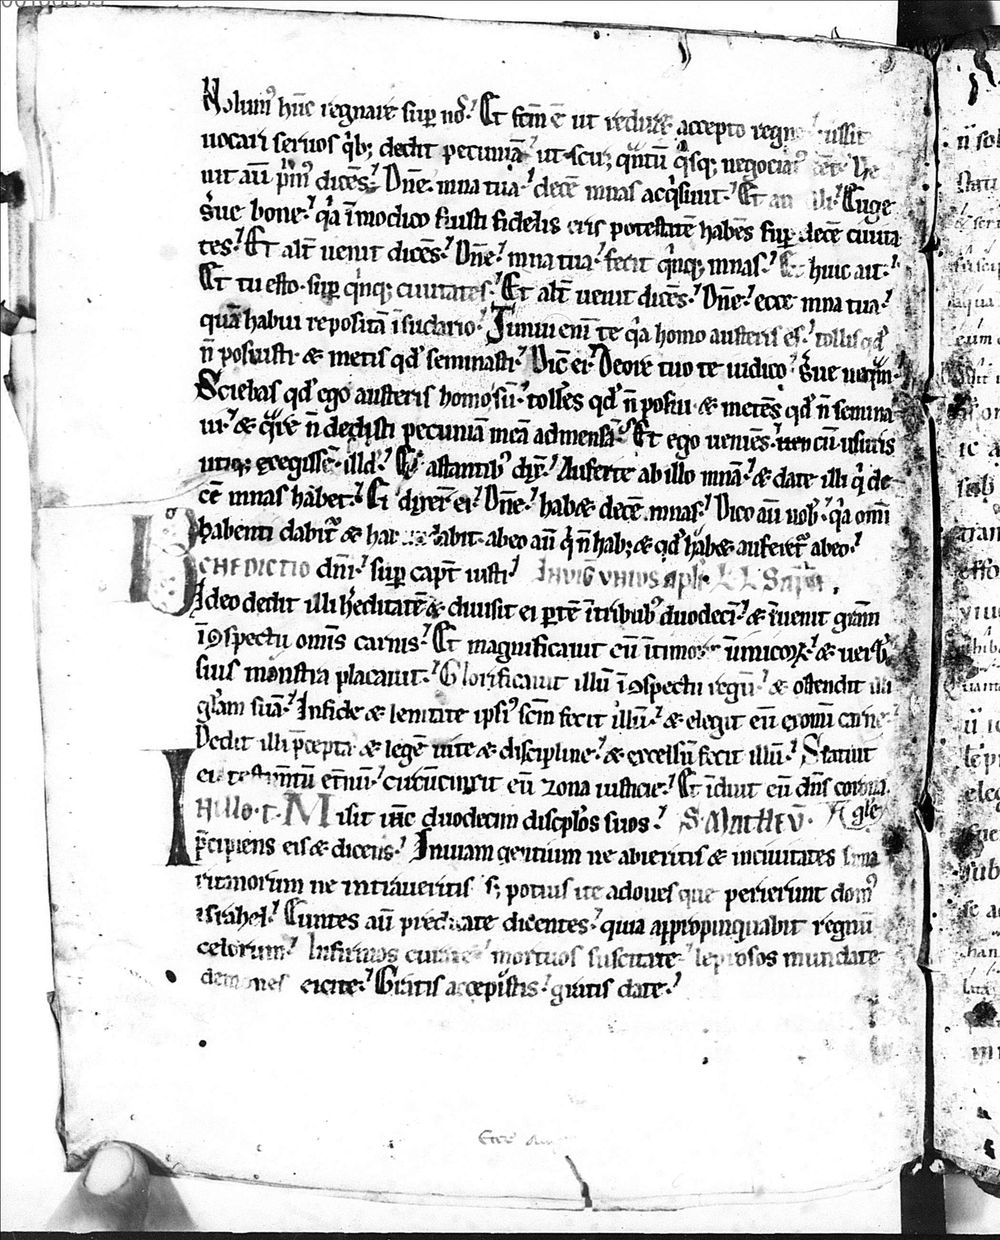 Nolum' hūc regnare sup nos. Et fcm ē ut redir& accepto regno iussit
uocari seruos qb; dedit pecuniā ut scir& qntū qsq; negociat' ēet. Ve
nit aū pm' dicēs. Dn̄e. mna tua decē mnas acqsiuit. Et ait illi. Euge
serue bone. qa ī modico fuisti fidelis eris potestatē habēs sup decē ciuita
tes. Et alt uenit dicēs. Dn̄e. mna tua fecit qnq; mnas. Et huic ait.
Et tu esto sup qnq; ciuitates. Et alt uenit dicēs. Dn̄e ecce mna tua
quā habui repositā ī sudario. Timui enī te qa homo austeris es. tollis qd
n̄ posuisti & metis qd seminasti. Dic̄ ei. De ore tuo te iudico serue nequam
Sciebas qd ego austeris homo sū tollēs qd n̄ posui & metēs qd n̄ semina
ui. & quare n̄ dedisti pecuniā meā ad mensā. Et ego ueniēs cū usuris
utiq; exegissē illd. Et astantib' dix̄. Auferte ab illo mnā & date illi q de
cē mnas habet. Et dixer̄ ei. Dn̄e. hab& decē mnas. Dico aū uob' qa omī
habenti dabit & habundabit. ab eo aū q n̄ hab; & qd hab& aufer& ab eo.
BENEDICTIO dn̄i sup capt iusti. IN VIG VNIVS apli. LL Sapīe.
Ideo dedit illi hereditatē & diuisit ei ptē ī tribub' duodecī. & īuenit grām
ī ɔspectu omīs carnis. Et magnificauit eū ī timore inimicoꝝ & uerb'
suis monstra placauit. Glorificauit illū ī ɔspectu regū & ostendit illi
gl̄am suā. In fide & lenitate ipsi' scm̄ fecit illū. & elegit eū ex omī carne
Dedit illi pcepta & legē uite & discipline. & excelsū fecit illū. Statuit
ei testamtū etnū. circūcinxit eū zona iusticie. Et īduit eū dn̄s corona
IN ILLO T. Misit ihc duodecim discplos suos. S. Mattheū. glē
pcipiens eis & dicens. In uiam gentium ne abieritis & in ciuitates sama
ritanorum ne intraueritis s; potius ite ad oues que perierunt dom'
israhel. Euntes aū predicate dicentes. quia appropinquabit regnū
celorum. Infirmos curate mortuos suscitate leprosos mundate
demones eicite. Gratis accepistis gratis date.